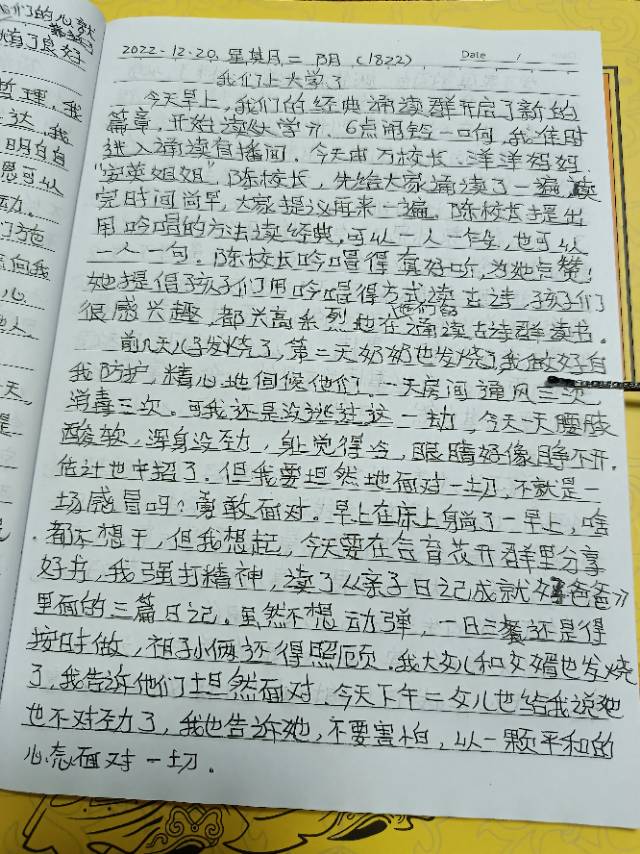 们的心就
焕了良好
哲理，我
达，我
明白自
动。
心
2022-12-20 星其月二 阴 (1822)
Date /
我们上大学了
今天早上，我们的经典诵读群开启了新的
篇章，开始读《大学》，6点闹铃一响，我准时
进入诵读直播间。今天由万校长、洋洋妈妈
"安英姐姐"，陈校长，先给大家诵读了一遍，读
完时间尚早，大家提议再来一遍。陈校长提出
用吟唱的方法读经典，可以一人一段，也可以
一人一句。陈校长吟唱得真好听，为她点赞！
她提倡孩子们用吟唱得方式读古诗，孩子们
很感兴趣，他们都都兴高采烈地在诵读古诗群读书。
前几天儿子发烧了，第二天奶奶也发烧了我做好自
我防护，精心地伺候他们。一天房间通风三次，
消毒三次。可我还是没逃过这一劫，今天一天腰腿
酸软，浑身没劲，身上觉得冷，眼睛好像睁不开，
估计也中招了。但我要坦然地面对一切，不就是一
场感冒吗？勇敢面对。早上在床上躺了一早上，啥
都不想干，但我想起，今天要在
花开群里分享
好书，我强打精神，读了《从亲子日记成就好爸爸》
里面的三篇日记。虽然不想动弹，一日三餐还是得
按时做，祖孙俩还得照顾。我大女儿和女婿也发烧
了，我告诉他们坦然面对。今天下午二女儿也给我说她
也不对劲了，我也告诉她，不要害怕，以一颗平和的
心态面对一切。